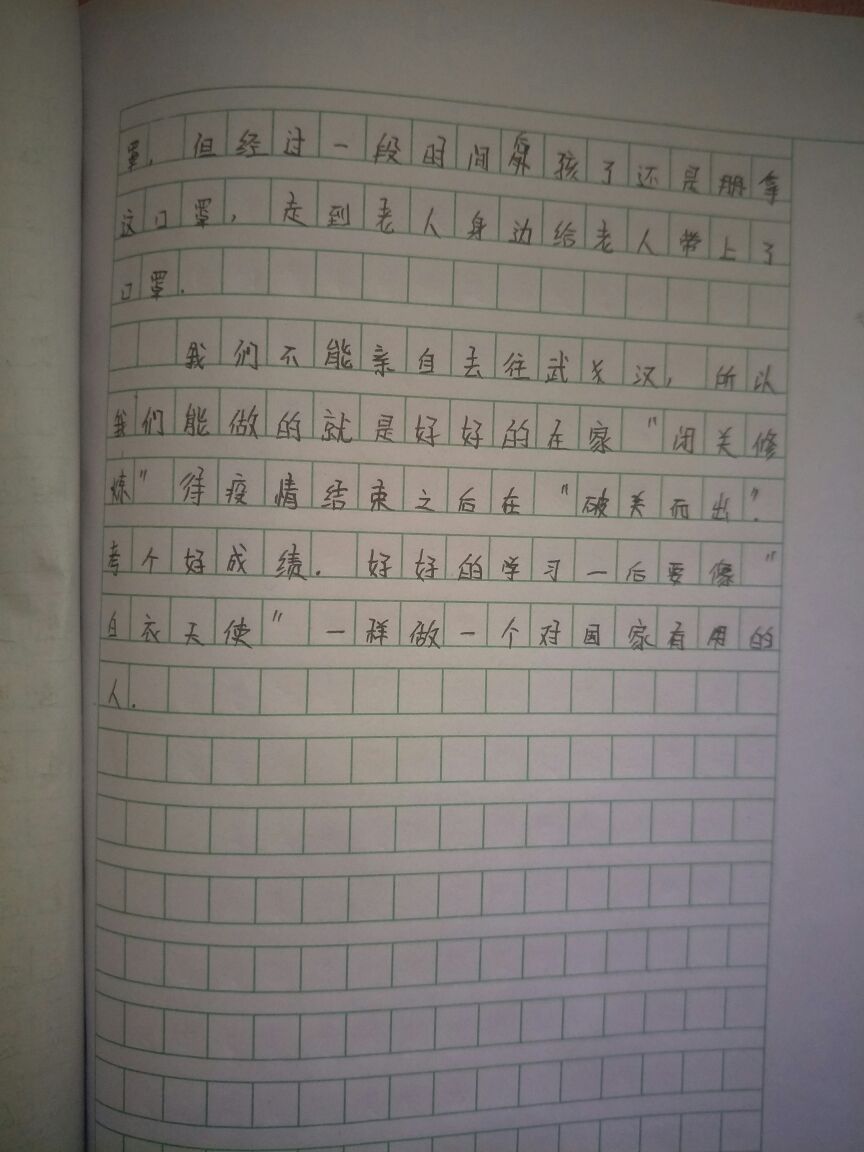 罩，但经过一段时间孩了还是拿
这口罩，走到老人身边给老人带上了
口罩.
我们不能亲自去往武汉，所以
我们能做的就是好好的在家"闭关修
炼"待疫情结束之后在"破关而出".
考个好成绩.好好的学习一后要像"
白衣天使"一样做一个对国家有用的
人.